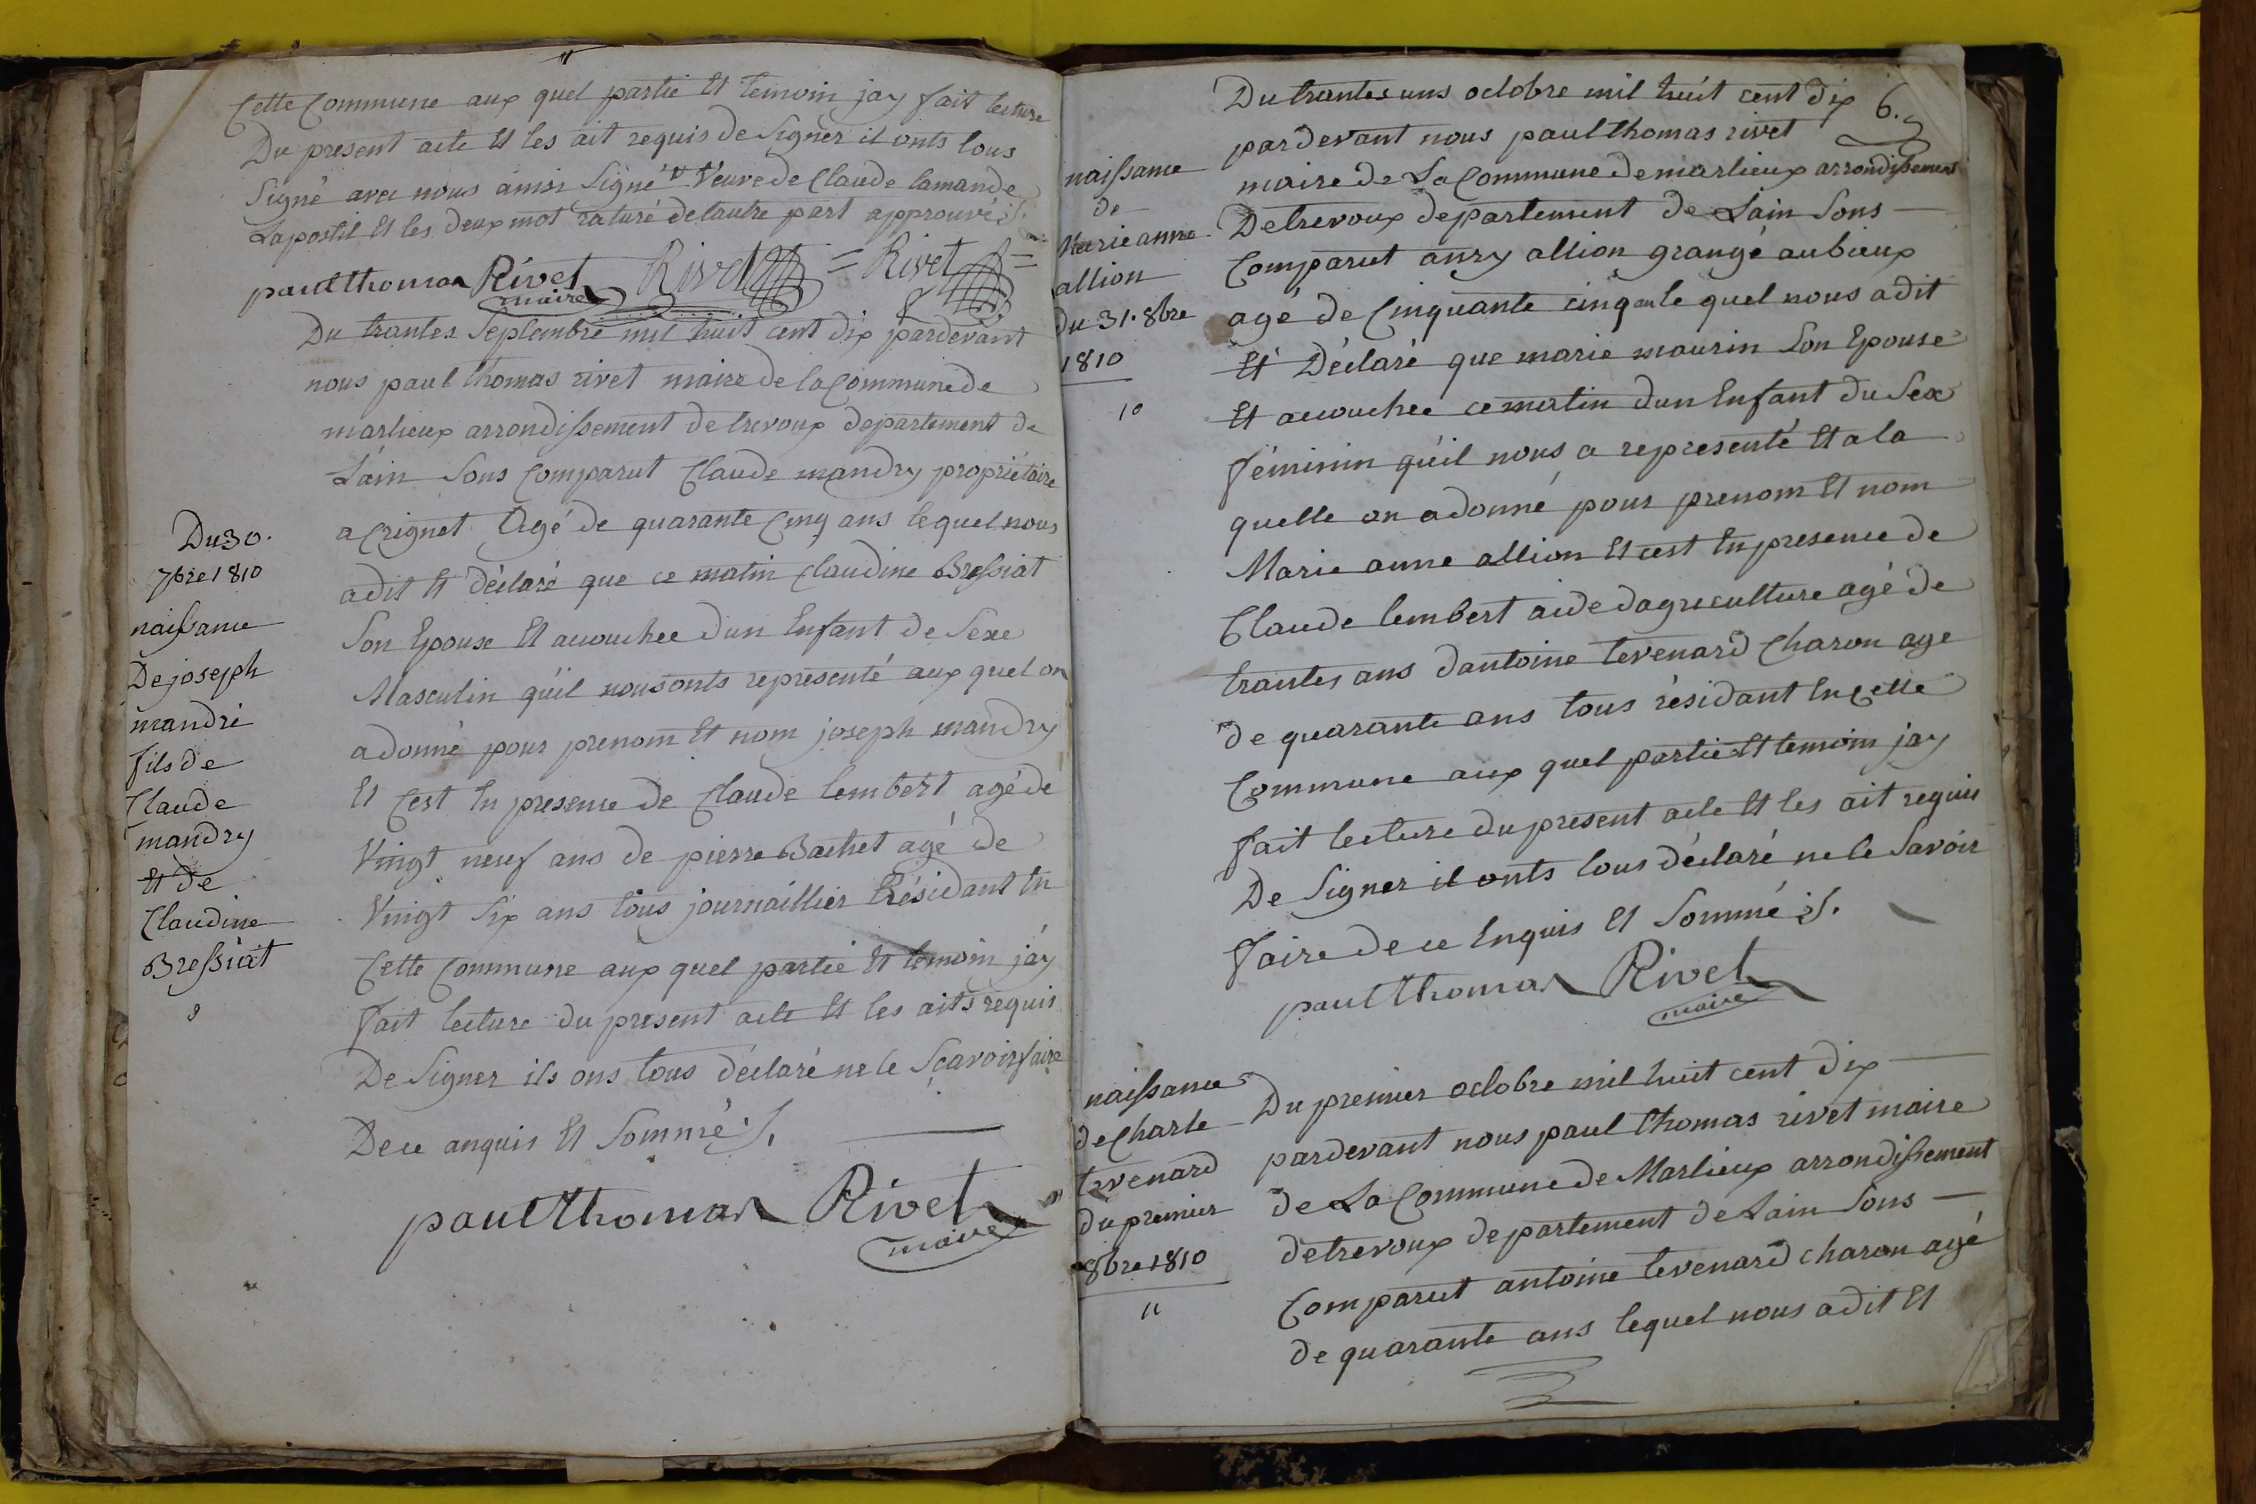 Cette Commune aux quel partie Et temoin jay fait lecture
Du present acte Et les ait requis de Signer il onts tous
Signé avec nous ainsi Signé Veuve de Claude lamande
Lapostil Et les deux mot raturé de lautre part approuvé ./.
paul thomas Rivet Rivet = Rivet =
maire
Du 30.
7bre 1810
naissance
De joseph
mandri
fils de
Claude
mandry
Et de
Claudine
Bressiat
9
Du trantes Septembre mil huit cent dix pardevant
nous paul thomas rivet maire de la Commune de
marlieux arrondissement de trevoux departement de
Lain Sons Comparut Claude mandry propriétaire
a Crignet Agé de quarante Cinq ans le quel nous
a dit Et déclaré que ce matin Claudine Bressiat
Son Epouse Et accouchee dun Enfant de Sexe
Masculin qu'il nous onts representé aux quel on
a donné pour prenom Et nom joseph mandry
Et Cest En presence de Claude lembert agé de
Vingt neuf ans de pierre Bachet agé de
Vingt Six ans tous journaillier Résidant En
Cette Commune aux quel partie Et temoin jáy
fait lecture du present acte Et les aits requis
De Signer ils ons tous déclaré ne le Sçavoir faire
De ce anquis Et Sommé ./.
paul thomas Rivet
maire
6.
naissance
de
Marie anne
allion
Du 31. 8bre
1810
10
Du trantes uns octobre mil huit cent dix
pardevant nous paul thomas rivet
maire de La Commune de marlieux arrondissement
De trevoux departement de Lain Sons
Comparut anry allion grangé au bieux
agé de Cinquante cinq an le quel nous a dit
Et Déclaré que marie maurin Son Epouse
Et accouchee ce matin dun Enfant du Sex
féminin qu'il nous a representé Et a la
quelle on a donné pour prenom Et nom
Marie anne allion Et cest En presence de
Claude lembert aide dagreculture agé de
trantes ans dantoine tevenard Charon age
de quarante ans tous résidant En Cette
Commune aux quel partie Et temoin jay
fait lecture du present acte Et les ait requis
De Signer il onts tous déclaré ne le Savoir
faire de ce Enquis Et Sommé ./.
paul thomas Rivet
maire
naissance
de Charle
tevenard
du premier
8bre 1810
11
Du premier octobre mil huit cent dix
pardevant nous paul thomas rivet maire
de La Commune de Marlieux arrondissement
de trevoux departement de Lain Sons
Comparut antoine tevenard charon agé
de quarante ans lequel nous a dit Et